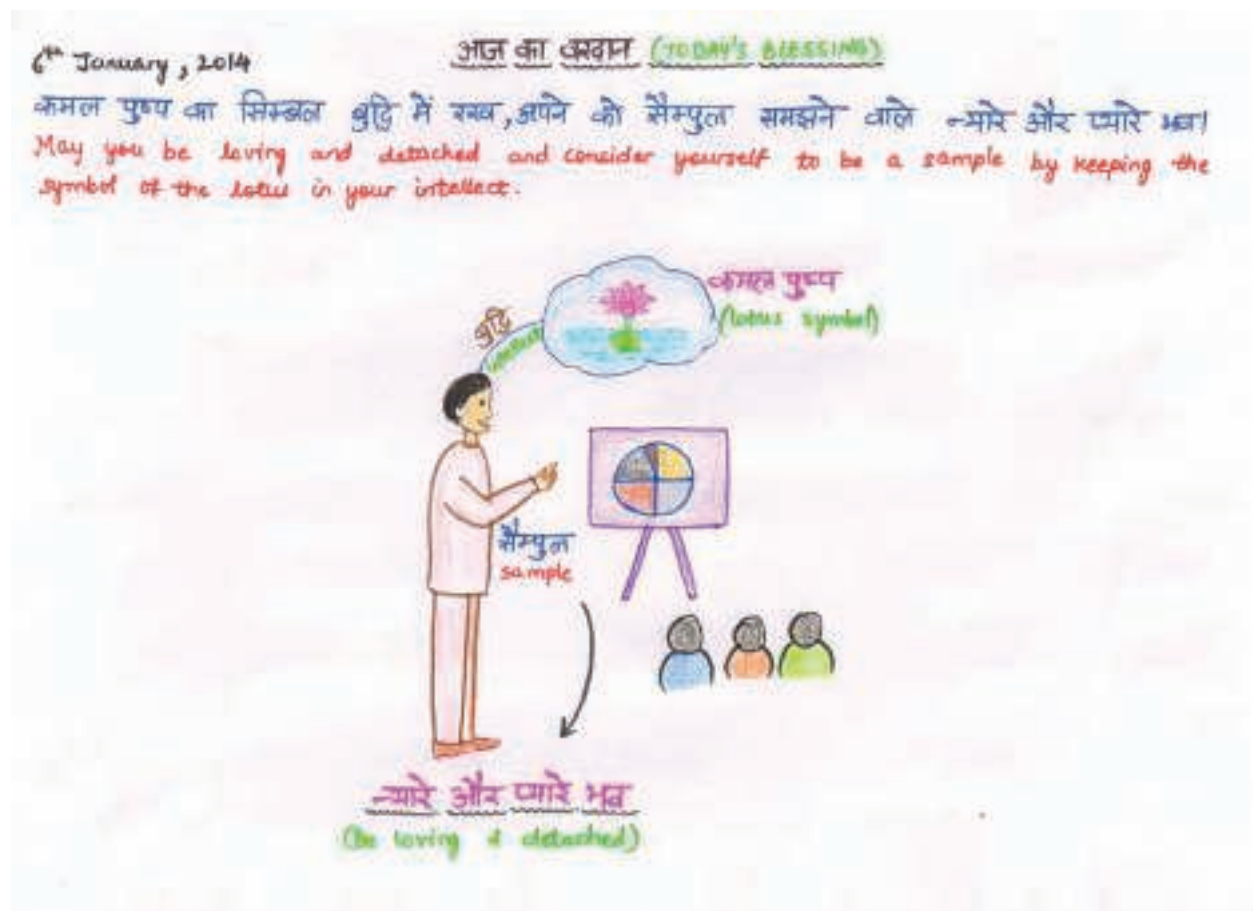 6th January, 2014
आज का वरदान (TODAY'S BLESSING)
कमल पुष्प का सिम्बल बुद्धि में रख, अपने को सैम्पुल समझने वाले न्यारे और प्यारे भव!
May you be loving and detached and consider yourself to be a sample by keeping the
symbol of the lotus in your intellect.
कमल पुष्प
(lotus symbol)
बुद्धि
intellect
सैम्पुल
sample
न्यारे और प्यारे भव
(Be loving & detached)